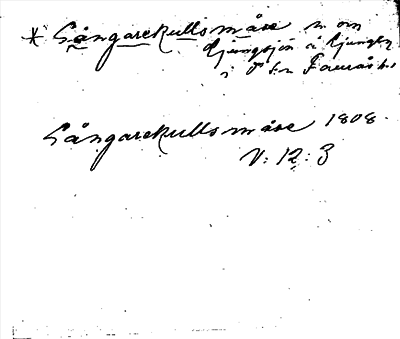 * Sångarekullsmåse n om
Ljungsjön å Ljungby
i Ö kn Faurås hd
Sångarekullsmåse 1808.
V: 12: 3